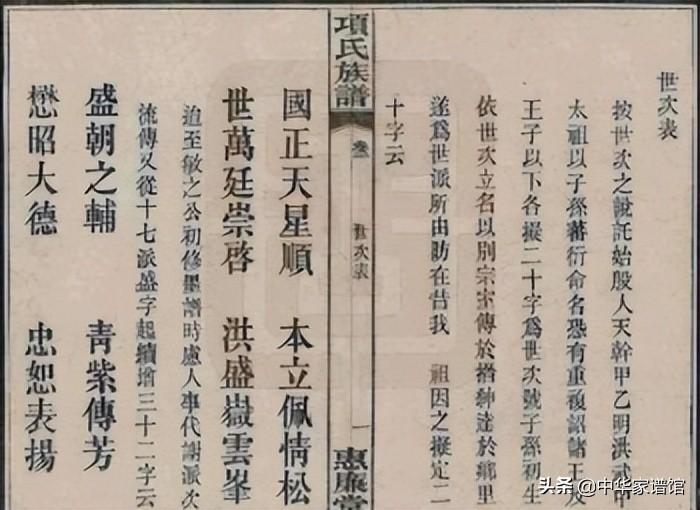 世次表
按世次之說託始殷人天幹甲乙明洪武甲
太祖以子孫蕃衍命名恐有重複詔諸王及
王子以下各擬二十字為世次號子孫初生
依世次立名以別宗宗傳於搢紳達於鄉里
遂為世派所由昉在昔我 祖因之擬定二
十字云
項氏族譜
卷 世次表
一
惠 堂
國正天星順 本立佩情松
世萬廷崇啓 洪盛嶽雲峯
迨至敏之公初修墨譜時慮人事代謝派次
流傳又從十七派盛字起續增三十二字云
盛朝之輔 青紫傳芳
懋昭大德 忠恕表揚
头条@中华家谱馆